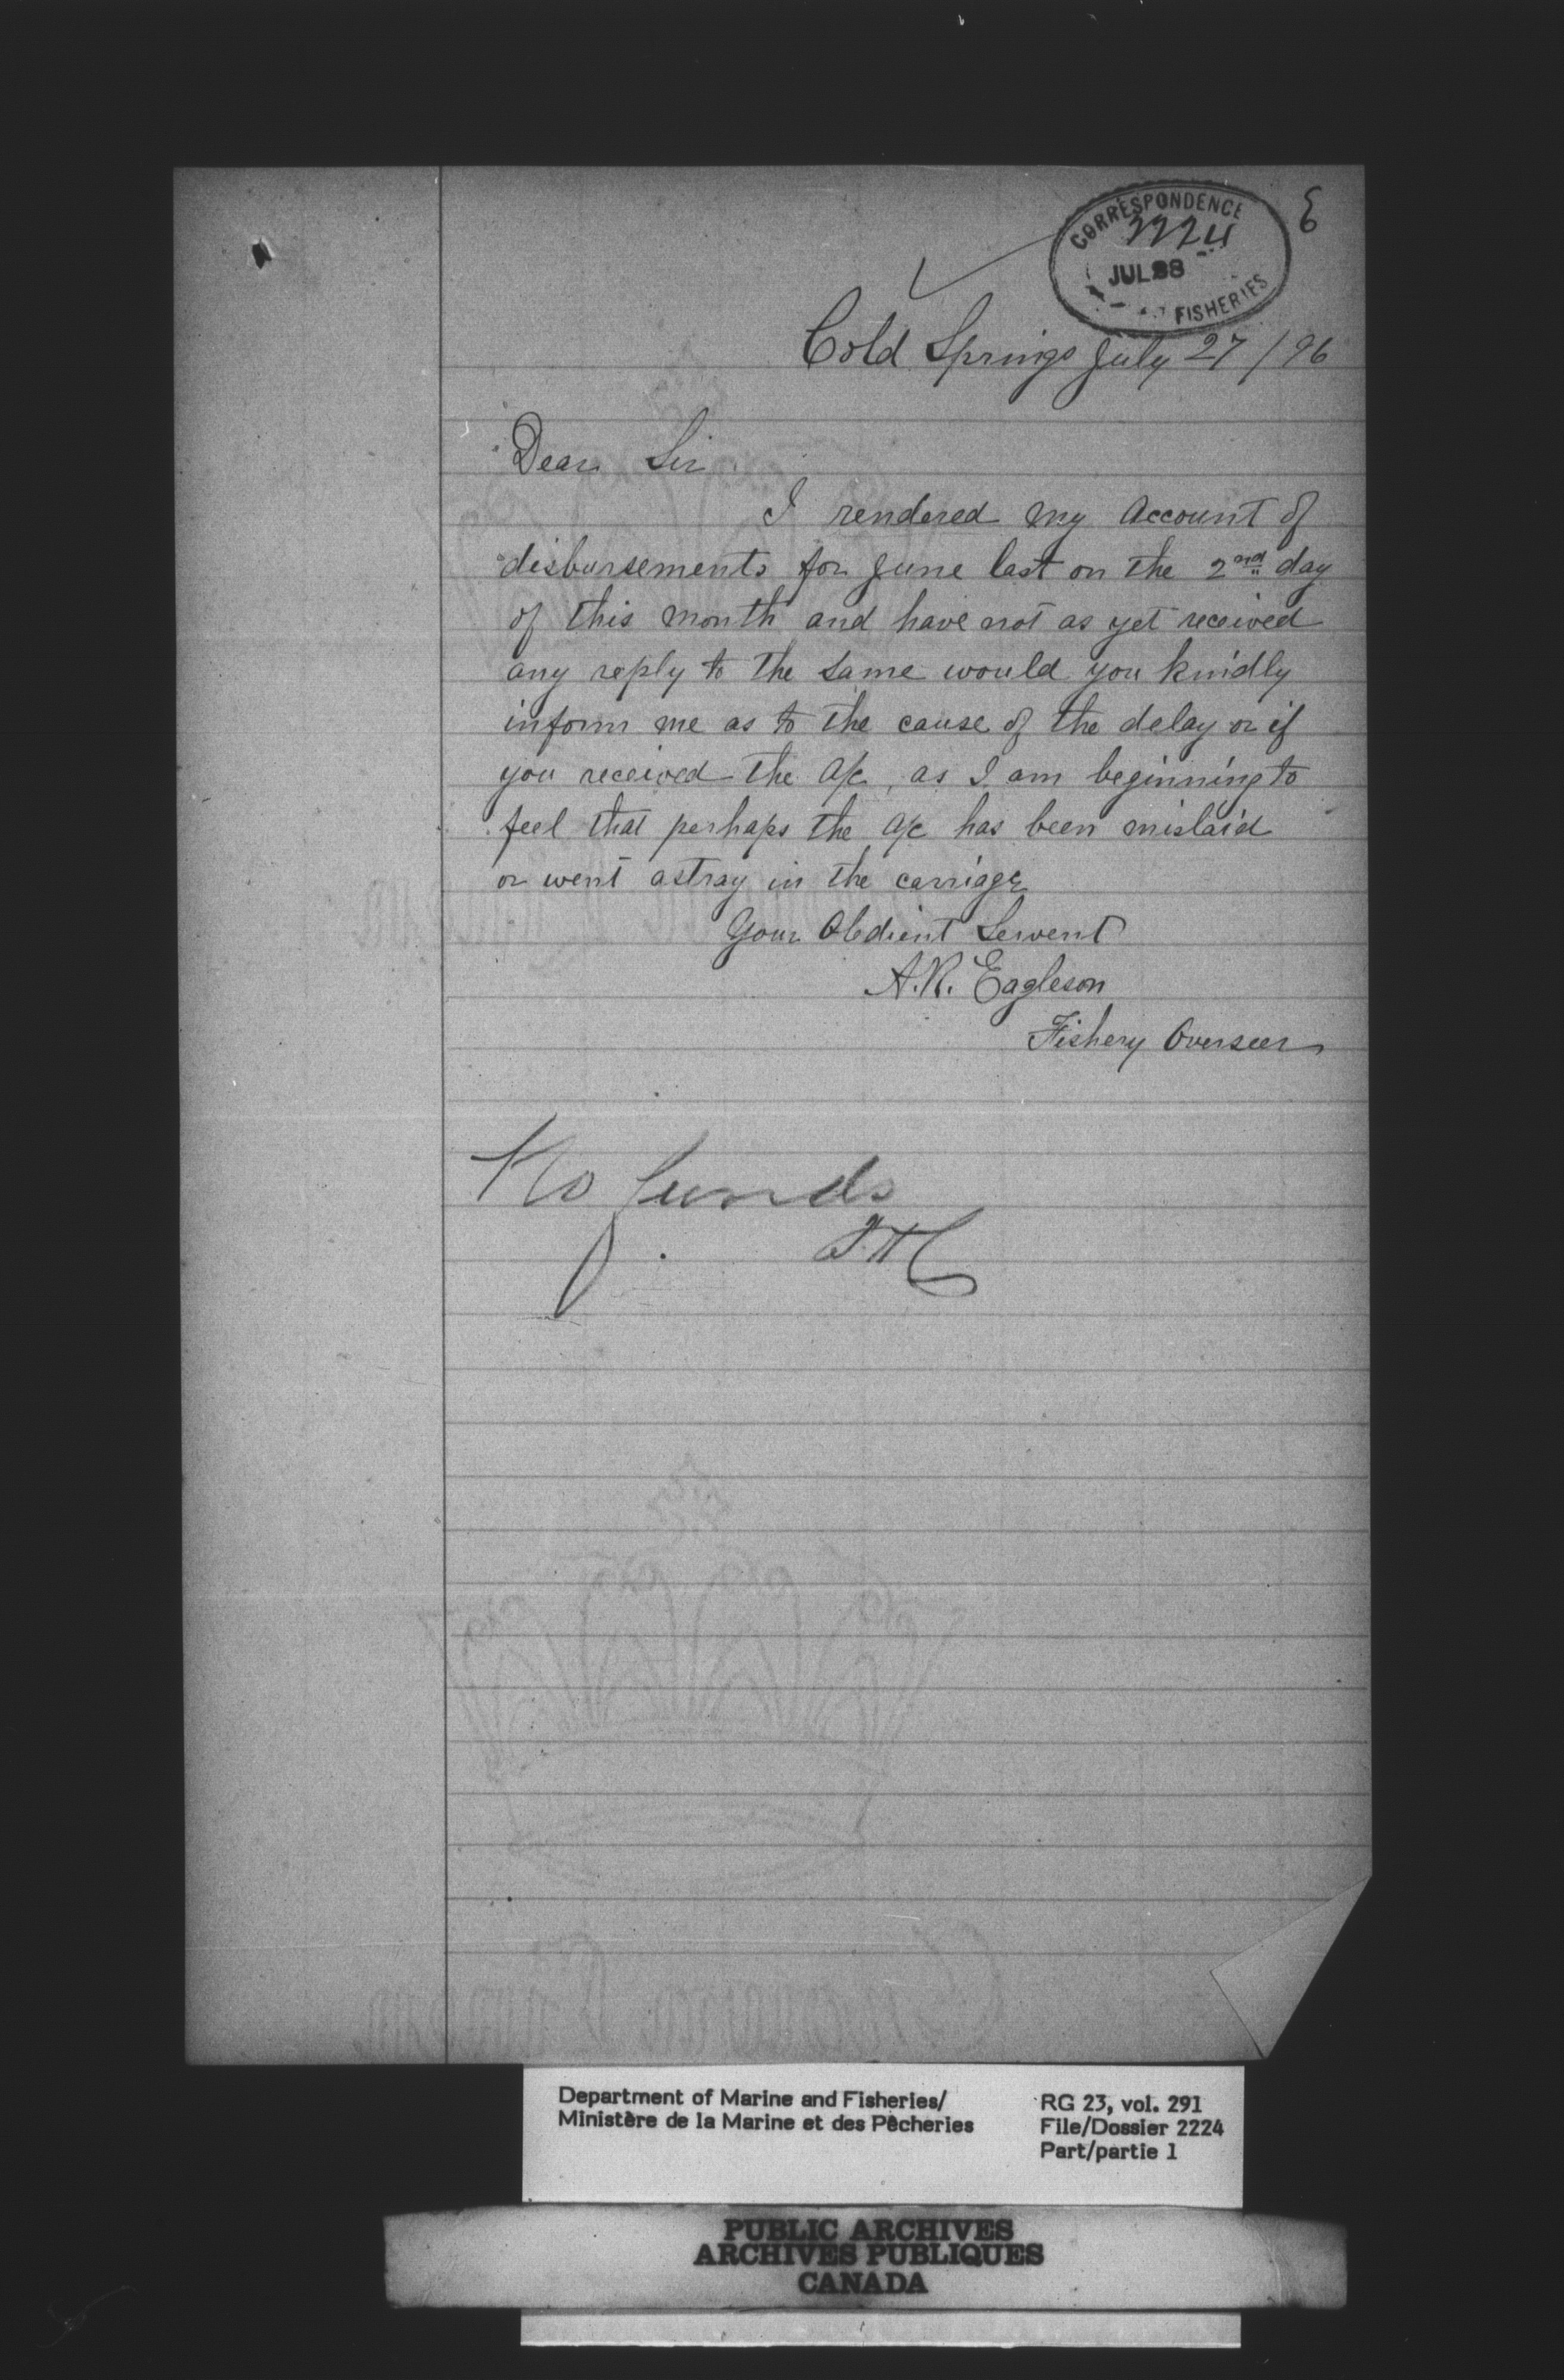 CORRESPONDENCE
2224
JUL 28
FISHERIES
E
Cold Springs July 27/96
Dear Sir
I rendered my Account of
disbursements for June last on the 2nd day
of this month and have not as yet received
any reply to the same would you kindly
inform me as to the cause of the delay or if
you received the a/c, as I am beginning to
feel that perhaps the a/c has been mislaid
or went astray in the carriage
Your Obdient Servent
A.R. Eagleson
Fishery Overseer
No funds
Department of Marine and Fisheries/
Ministère de la Marine et des Pêcheries
RG 23, vol. 291
File/Dossier 2224
Part/partie 1
PUBLIC ARCHIVES
ARCHIVES PUBLIQUES
CANADA